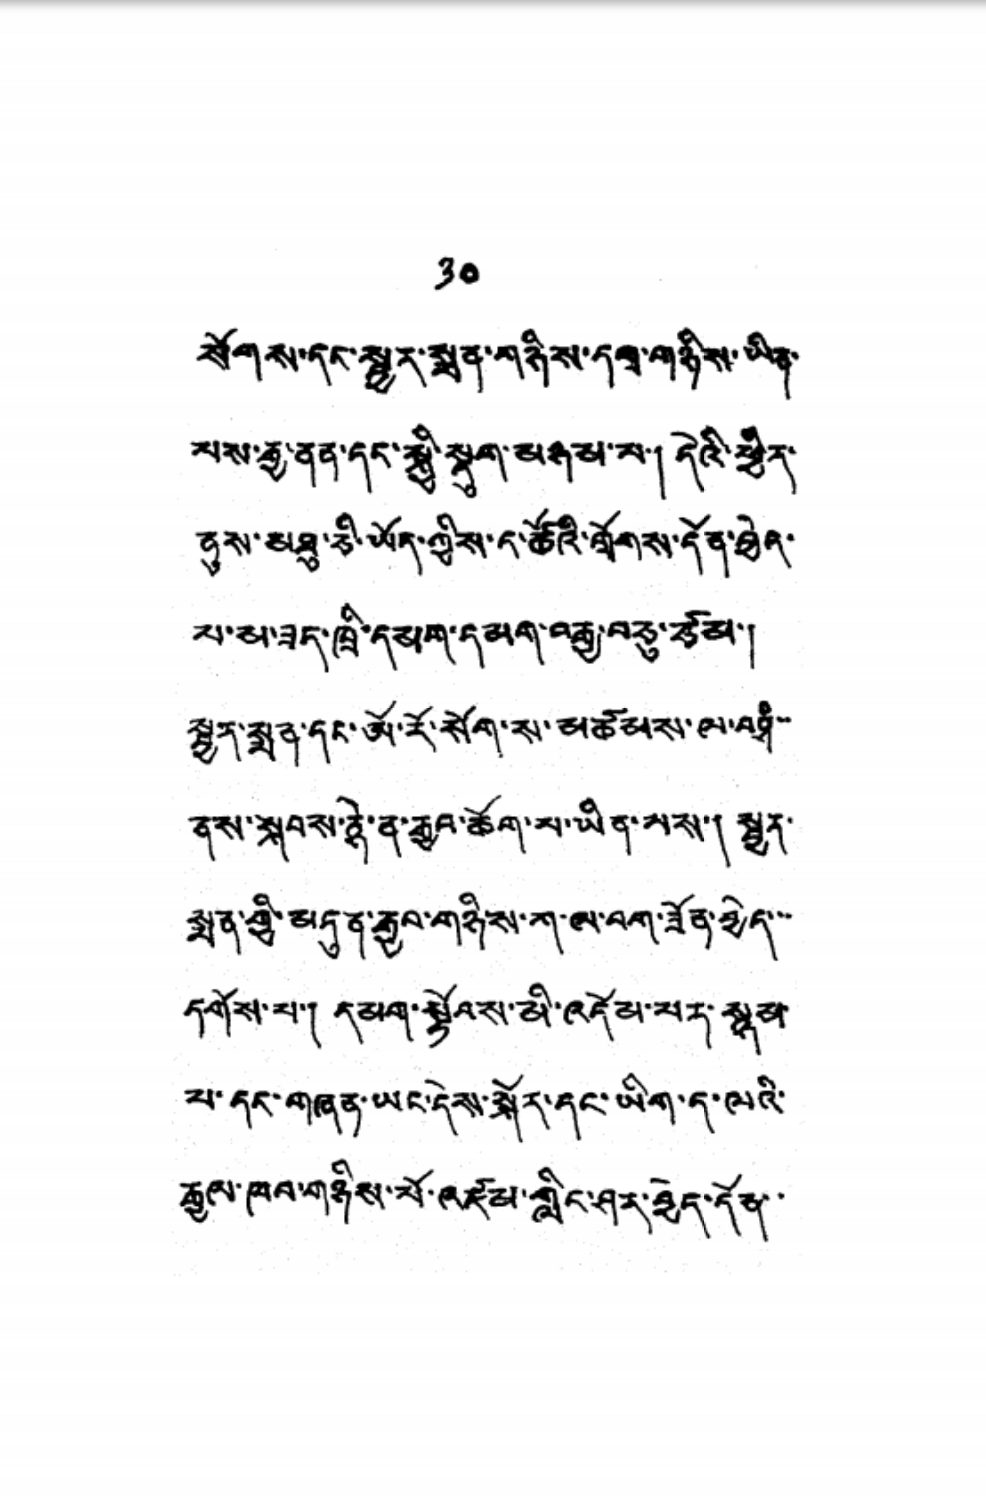 ༣༠
སོགས་དང་སྦྱར་སྨན་གཉིས་དགྲ་གཉིས་ཡིན་
པས་རྒྱ་ནན་དང་སྤྱི་སྡུག་མཉམ་པ། དེའི་ཕྱིར་
ནུས་མཐུ་ཅི་ཡོད་ཀྱིས་ད་ཚོའི་གྲོགས་དོན་བྱེད་
པ་མ་ཟད་ཁྲི་དམག་དམག་བརྒྱ་བཅུ་ཙམ།
སྦྱར་སྨན་དང་ཨོ་རོ་སོག་ས་མཚོམས་ལ་བཀྲི
ནས་སྐབས་རྟེ་ན་རྒྱབ་ཆོག་པ་ཡིན་པས། སྦྱར་
སྨན་གྱི་མདུན་རྒྱབ་གཉིས་ཀ་ལ་བག་ཟོན་བྱེད་
དགོས་པ། དམག་སྟོབས་མི་འདོམ་པར་སྙམ
པ་དང་གཞན་ཡང་དེས་སྐོར་དང་ཡིག་ད་ལའི་
རྒྱལ་ཁབ་གཉིས་པོ་འཛོམ་གླིང་ཤར་བྱེད་དོན་